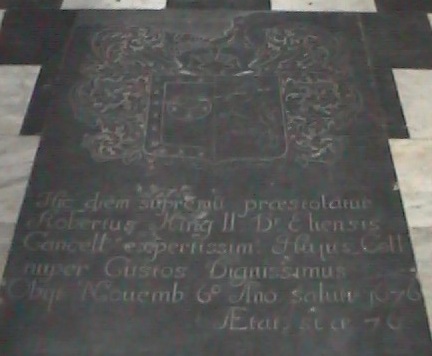 Hic diem supremū præstolatur
Robertus King LL Dr Eliensis
Cancell expertissim Hujus Coll
nuper Custos Dignissimus
Obijt Nouemb 6º Ano salutis 1676
Ætat 76